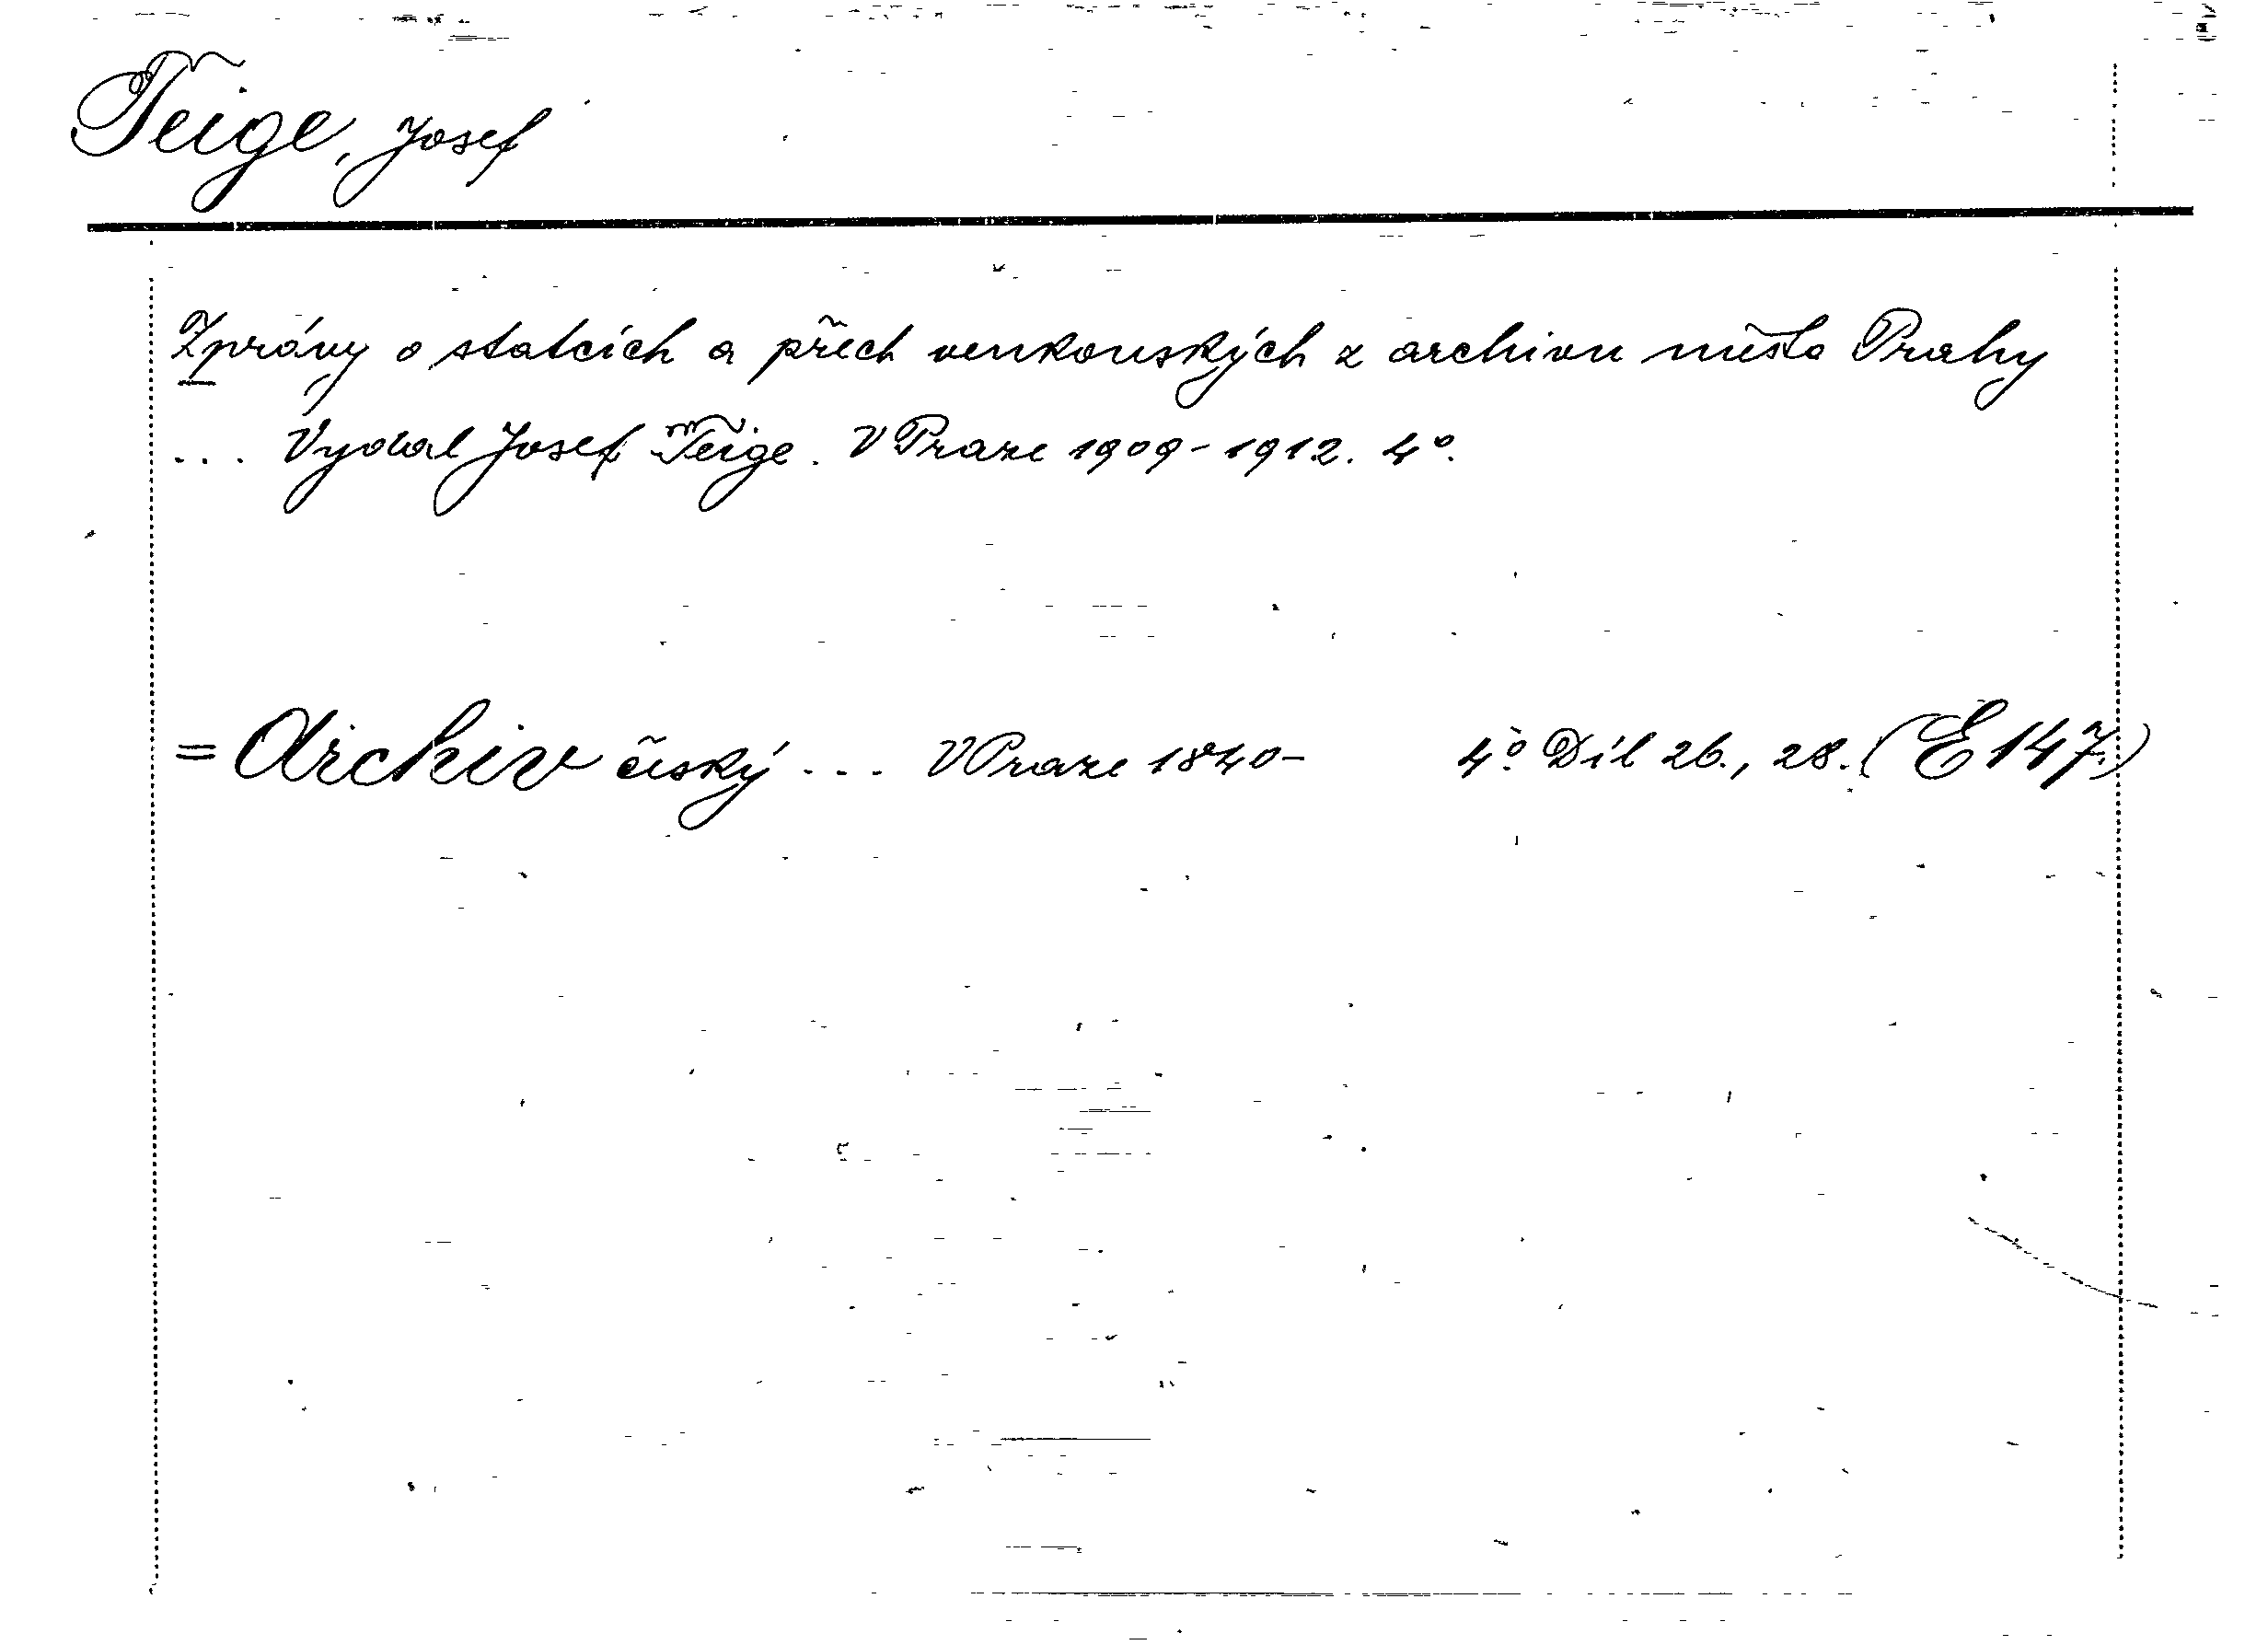 Teige, Josef
Zprávy o statcích a přech venkovských z archivu města Prahy
... Vydal Josef Teige. V Praze 1909-1912. 4°.
= Archiv český ... V Praze 1840- 4°. Díl 26., 28. (E 147.)